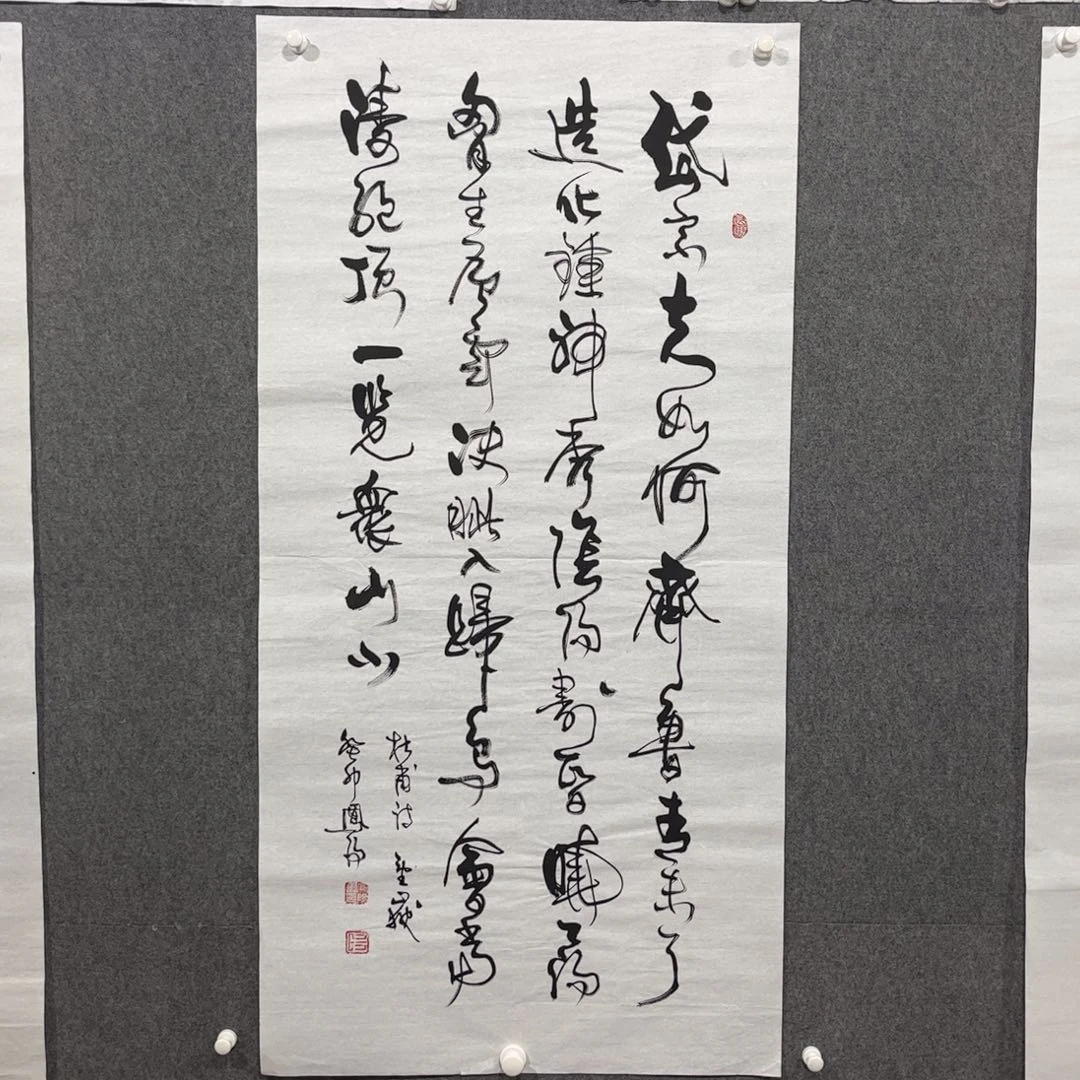 岱宗夫如何齊魯青未了
造化鍾神秀陰陽割昏曉蕩
胷生層雲決眦入歸鳥會當
淩絕頂一覽衆山小
杜甫詩 望嶽
癸卯